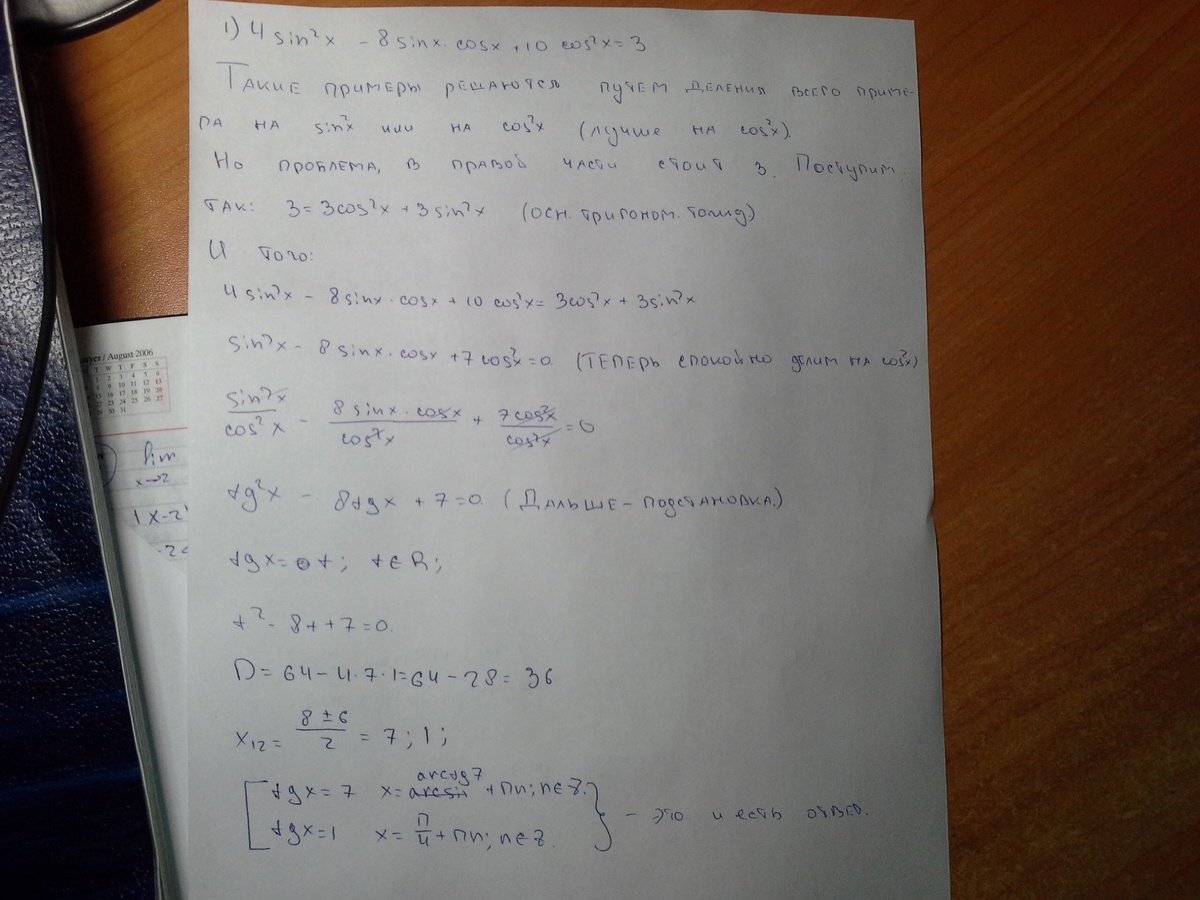 1) 4 sin²x - 8 sinx · cosx + 10 cos²x = 3
Такие примеры решаются путем деления всего приме-
ра на sin²x или на cos²x (лучше на cos²x).
Но проблема, в правой части стоит 3. Поступим
так: 3 = 3cos²x + 3sin²x (осн. тригоном. тожд)
И того:
4 sin²x - 8 sinx · cosx + 10 cos²x = 3cos²x + 3sin²x
sin²x - 8 sinx · cosx + 7 cos²x = 0. (теперь спокойно делим на cos²x)
sin²x/cos²x - 8 sinx · cosx/cos²x + 7 cos²x/cos²x = 0
tg²x - 8tgx + 7 = 0. (Дальше - подстановка.)
tgx = t; t ∈ R;
t² - 8t + 7 = 0.
D = 64 - 4 · 7 · 1 = 64 - 28 = 36
x₁₂ = 8 ± 6/2 = 7; 1;
tgx = 7 x = arctg7 + πn; n ∈ Z. - это и есть ответ.
tgx = 1 x = π/4 + πn; n ∈ Z.
August 2006
lim
x→2